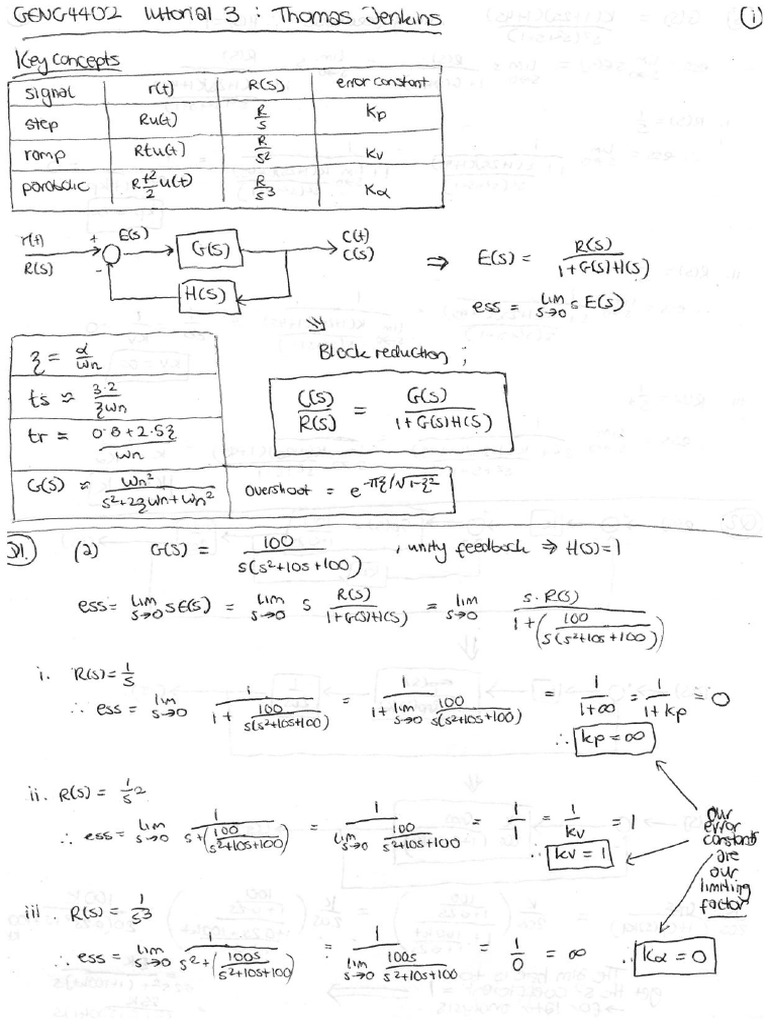 GENG4402 Tutorial 3 : Thomas Jenkins (i)
Key concepts
signal r(t) R(s) error constant
step Ru(t) R/s Kp
ramp Rtu(t) R/s² Kv
parabolic R t²/2 u(t) R/s³ Kα
r(t) + E(s) G(s) C(t)
R(s) - C(s)
H(s)
⇒ E(s) = R(s)/(1+G(s)H(s))
ess = lim s→0 sE(s)
Block reduction ;
C(s)/R(s) = G(s)/(1+G(s)H(s))
ξ = α/ωn
ts ≈ 3.2/(ξωn)
tr ≈ (0.8+2.5ξ)/ωn
G(s) ≈ ωn²/(s²+2ξωn+ωn²)
overshoot = e^(-πξ/√1-ξ²)
Q1. (2) G(s) = 100/(s(s²+10s+100)) , unity feedback ⇒ H(s)=1
ess = lim s→0 sE(s) = lim s→0 s R(s)/(1+G(s)H(s)) = lim s→0 s.R(s)/(1+(100/(s(s²+10s+100))))
i. R(s)=1/s
∴ ess = lim s→0 1/(1+100/(s(s²+10s+100))) = 1/(1+lim s→0 100/(s(s²+10s+100))) = 1/(1+∞) = 1/(1+kp) = 0
∴ kp=∞
ii. R(s) = 1/s²
∴ ess = lim s→0 1/(s+(100/(s²+10s+100))) = 1/(lim s→0 100/(s²+10s+100)) = 1/1 = 1/kv = 1
∴ kv=1
our
error
constants
are
our
limiting
factor
iii. R(s) = 1/s³
∴ ess = lim s→0 1/(s²+(100s/(s²+10s+100))) = 1/(lim s→0 100s/(s²+10s+100)) = 1/0 = ∞ ∴ kα = 0